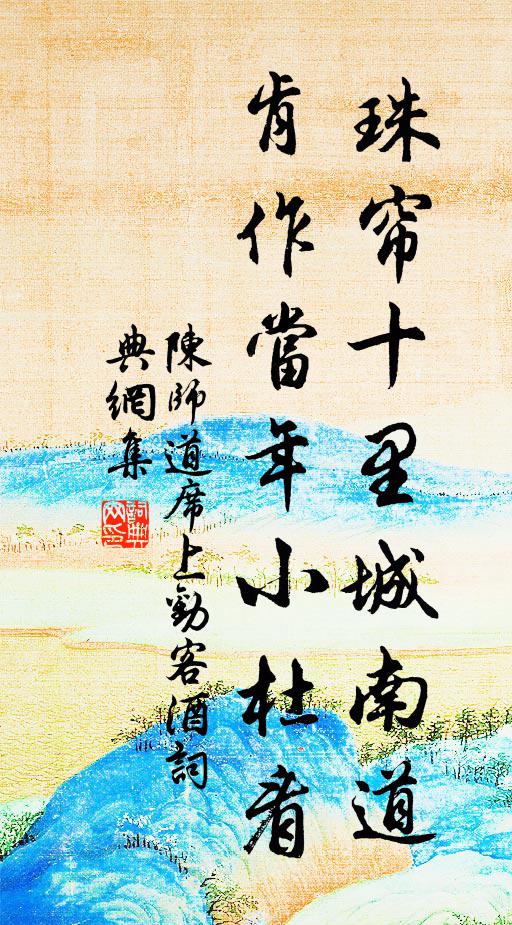 珠帘十里城南道
肯作當年小杜看
陳師道席上勸客酒詞
典網集
詞典
网印